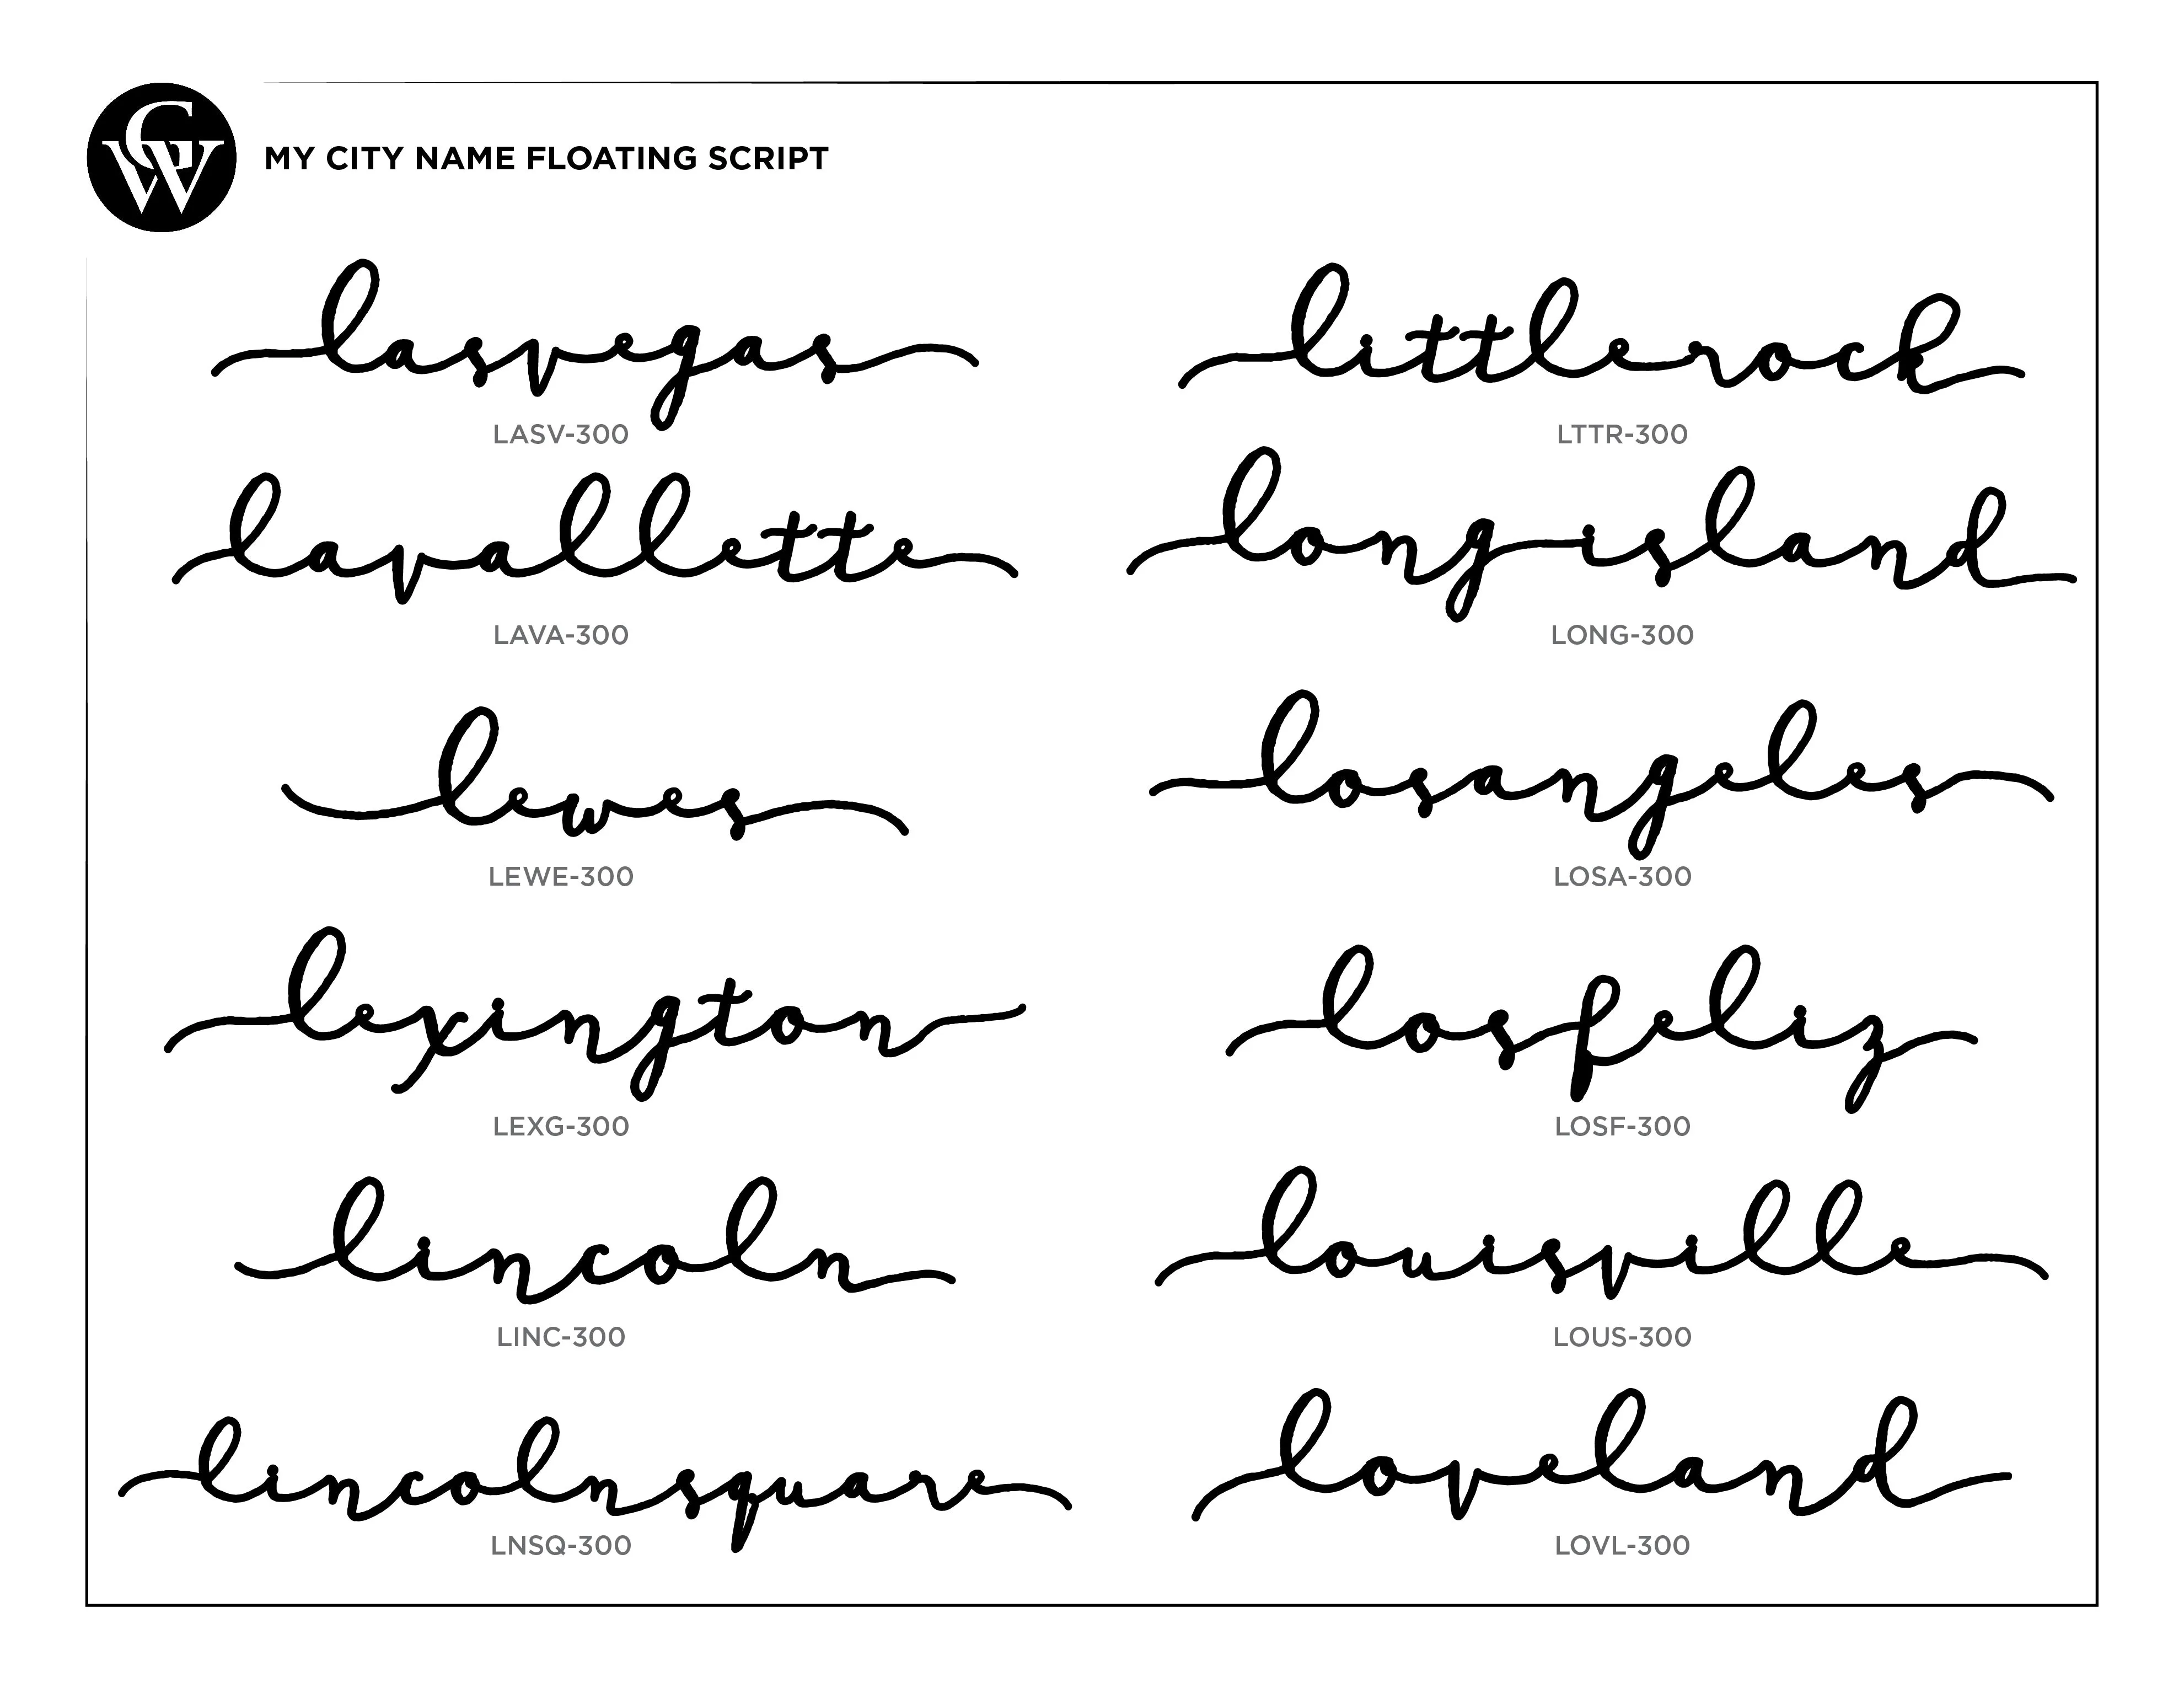 CW
MY CITY NAME FLOATING SCRIPT
lasvegas
LASV-300
lavallette
LAVA-300
lewes
LEWE-300
lexington
LEXG-300
lincoln
LINC-300
lincolnsquare
LNSQ-300
littlerock
LTTR-300
longisland
LONG-300
losangeles
LOSA-300
losfeliz
LOSF-300
louisville
LOUS-300
loveland
LOVL-300